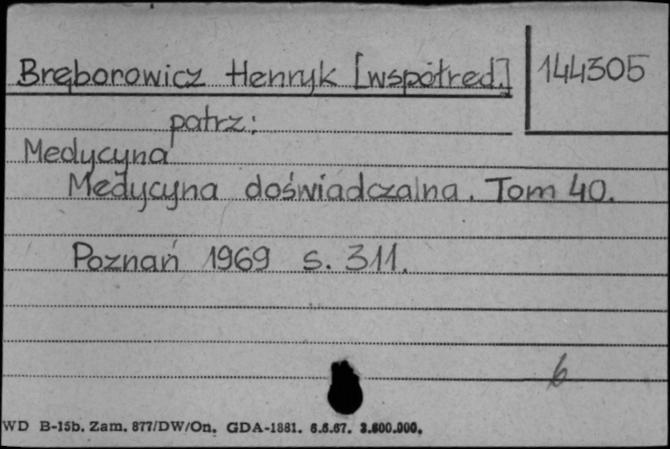 Bręborowicz Henryk [współred.] 144305
patrz:
Medycyna
Medycyna doświadczalna. Tom 40.
Poznań 1969 s. 311.
6
WD B-15b. Zam. 877/DW/On. GDA-1881. 6.6.67. 3.800.000.